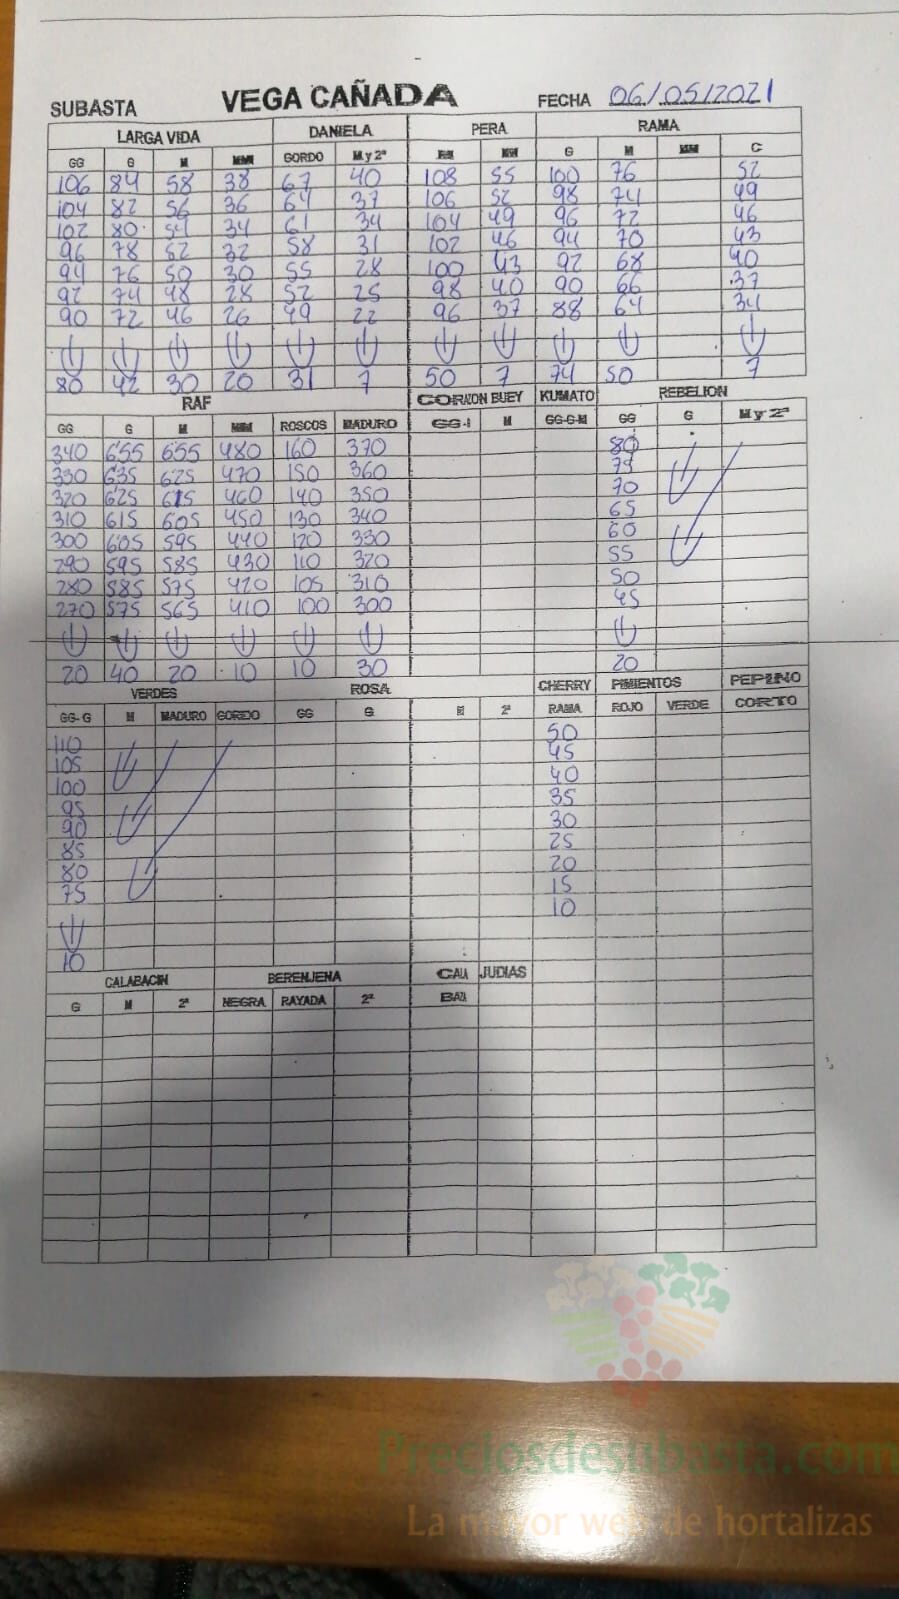 SUBASTA VEGA CAÑADA FECHA 06/05/2021
LARGA VIDA DANIELA PERA RAMA
GG G M MM GORDO M y 2ª MM G M MM C
106 84 58 38 67 40 108 55 100 76 52
104 82 56 36 64 37 106 52 98 74 49
102 80 54 34 61 34 104 49 96 72 46
96 78 52 32 58 31 102 46 94 70 43
94 76 50 30 55 28 100 43 92 68 40
92 74 48 28 52 25 98 40 90 66 37
90 72 46 26 49 22 96 37 88 64 34
80 42 30 20 31 7 50 7 74 50 7
RAF CORAZON BUEY KUMATO REBELION
GG G M MM ROSCOS MADURO GG-I M GG-G-M GG G M y 2ª
340 655 655 480 160 370 80
330 635 625 470 150 360
320 625 615 460 140 350 70
310 615 605 450 130 340 65
300 605 595 440 120 330 60
290 595 585 430 110 320 55
280 585 575 420 105 310 50
270 575 565 410 100 300 45
20 40 20 10 10 30 20
VERDES ROSA CHERRY PIMIENTOS PEPINO
GG-G M MADURO GORDO GG G M 2ª RAMA ROJO VERDE CORTO
110 50
105 45
100 40
95 35
90 30
85 25
80 20
75 15
10
10
CALABACIN BERENJENA CALA JUDIAS
G M 2ª NEGRA RAYADA 2ª BAZA
Preciosdesubasta.com
La mayor web de hortalizas